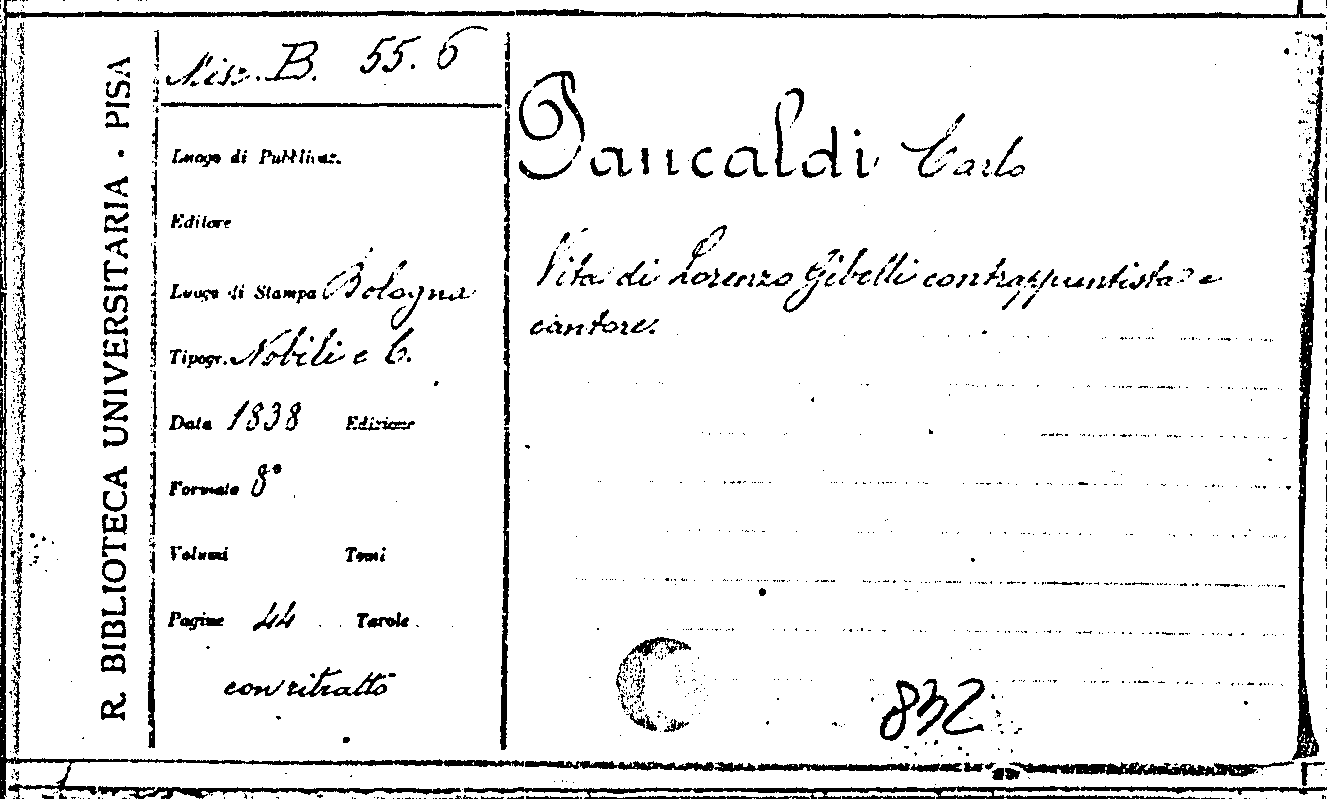 R. BIBLIOTECA UNIVERSITARIA . PISA
Misc. B. 55. 6
Luogo di Pubblicaz.
Editore
Luogo di Stampa Bologna
Tipogr. Nobili e C.
Data 1838 Edizione
Formato 8°
Volumi Tomi
Pagine 44 Tavole
con ritratto
Pancaldi Carlo
Vita di Lorenzo Gibelli contrappuntista e
cantore.
832